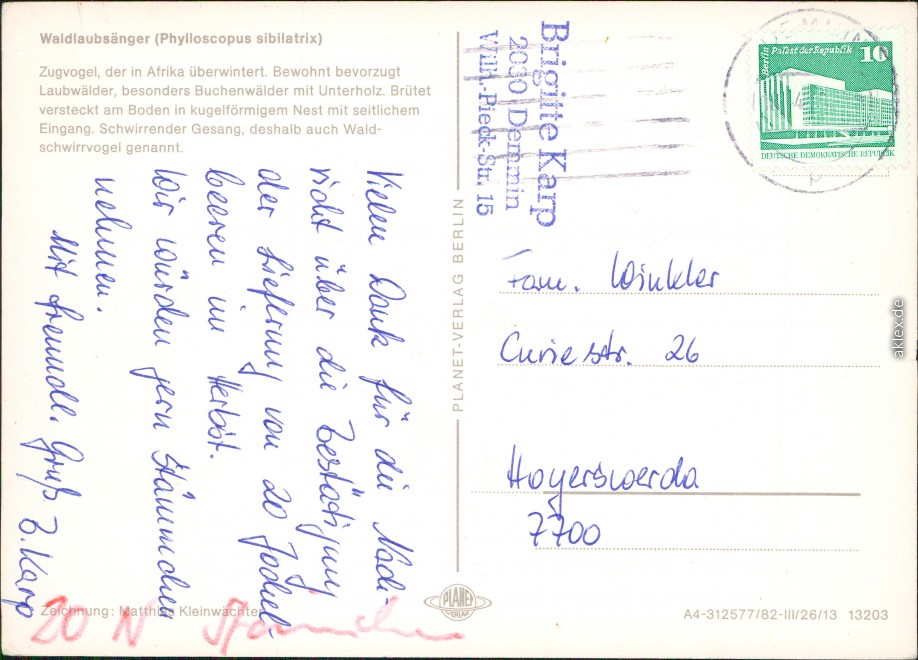 Waldlaubsänger (Phylloscopus sibilatrix)
Zugvogel, der in Afrika überwintert. Bewohnt bevorzugt
Laubwälder, besonders Buchenwälder mit Unterholz. Brütet
versteckt am Boden in kugelförmigem Nest mit seitlichem
Eingang. Schwirrender Gesang, deshalb auch Wald-
schwirrvogel genannt.
Vielen Dank für die Nach-
richt über die Bestätigung
der Lieferung von 20 Jochel-
beeren im Herbst.
Wir würden gern Stämmchen
nehmen.
Mit freundl. Gruß B. Karp
Zeichnung: Matthias Kleinwächter
20 N Stämmchen
PLANET-VERLAG BERLIN
Brigitte Karp
2030 Demmin
Wilh.-Pieck-Str. 15
Berlin Palast der Republik 10
DEUTSCHE DEMOKRATISCHE REPUBLIK
Fam. Winkler
Curiestr. 26
Hoyerswerda
7700
PLANET
VERLAG
A4-312577/82-III/26/13 13203
aklex.de